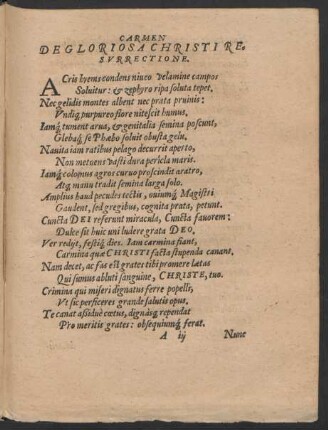 CARMEN
DE GLORIOSA CHRISTI RE-
SVRRECTIONE.
ACris hyems condens niueo velamine campos
Soluitur: & zephyro ripa soluta tepet.
Nec gelidis montes albent nec prata pruinis:
Vndiq́ purpureo flore nitescit humus.
Iamq́ tument arua, & genitalia semina poscunt,
Glebaq́ se Phœbo soluit obusta gelu.
Nauita iam ratibus pelago decurrit aperto,
Non metuens vasti dura pericla maris.
Iamq́ colonus agros curuo proscindit aratro,
Atq́ manu tradit semina larga solo.
Amplius haud pecudes tectis, ouiumq́ Magistri
Gaudent, sed gregibus, cognita prata, petunt.
Cuncta DEI referunt miracula, Cuncta fauorem:
Dulce sit huic uni ludere grata DEO.
Ver redijt, festiq́ dies. Iam carmina fiant,
Carmina quæ CHRISTI facta stupenda canant.
Nam decet, ac fas est grates tibi promere lætas
Qui sumus abluti sanguine, CHRISTE, tuo.
Crimina qui miseri dignatus ferre popelli,
Vt sic perficeres grande salutis opus.
Te canat assiduè cœtus, dignasq́ rependat
Pro meritis grates: obsequiumq́ ferat.
A ij Nunc